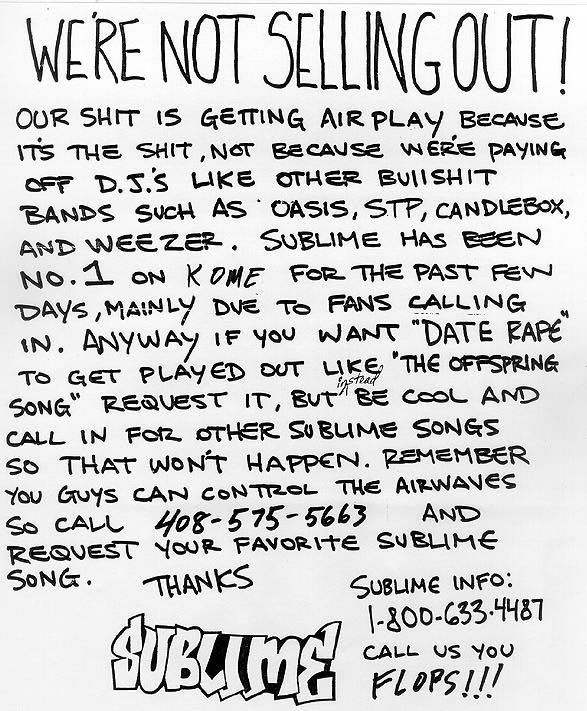 WE'RE NOT SELLING OUT!
OUR SHIT IS GETTING AIR PLAY BECAUSE
IT'S THE SHIT, NOT BECAUSE WE'RE PAYING
OFF D.J.'S LIKE OTHER BUllSHIT
BANDS SUCH AS OASIS, STP, CANDLEBOX,
AND WEEZER. SUBLIME HAS BEEN
NO. 1 ON KOME FOR THE PAST FEW
DAYS, MAINLY DUE TO FANS CALLING
IN. ANYWAY IF YOU WANT "DATE RAPE"
TO GET PLAYED OUT LIKE "THE OFFSPRING
SONG" REQUEST IT, BUT instead BE COOL AND
CALL IN FOR OTHER SUBLIME SONGS
SO THAT WON'T HAPPEN. REMEMBER
YOU GUYS CAN CONTROL THE AIRWAVES
SO CALL 408-575-5663 AND
REQUEST YOUR FAVORITE SUBLIME
SONG. THANKS
SUBLIME
SUBLIME INFO:
1-800-633-4487
CALL US YOU
FLOPS!!!